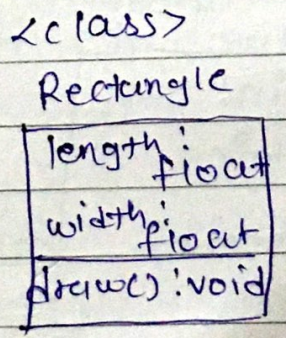 <class>
Rectangle
length:
float
width:
float
draw():void